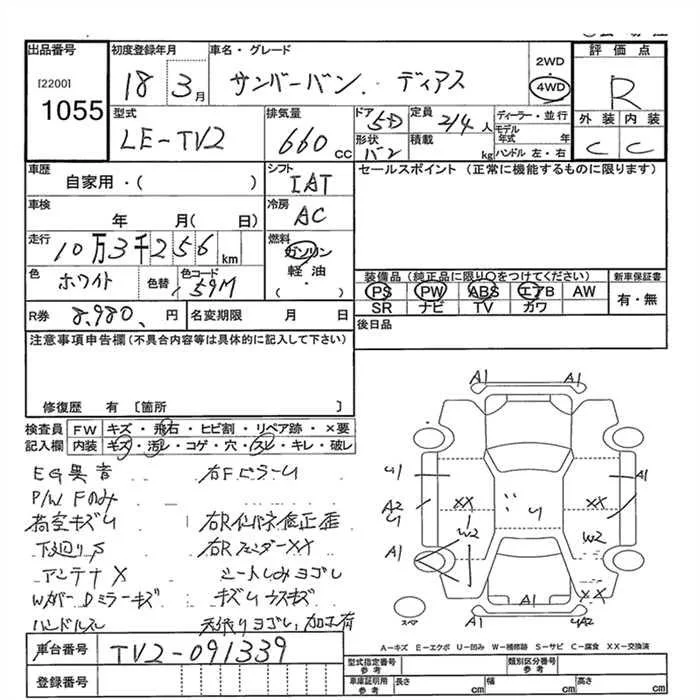 出品番号 初度登録年月 車名・グレード 2WD 評価点
[2200] 18 3月 サンバーバン. ディアス 4WD R
1055
型式 排気量 ドア 定員 ディーラー・並行 外装 内装
LE-TV2 660cc 5D 2/4人 モデル年式 年 C C
形状 バン 積載 kg ハンドル 左・右
車歴 シフト セールスポイント (正常に機能するものに限ります)
自家用・( ) IAT
車検 冷房
年 月( 日) AC
走行 燃料
10万3千256km ガソリン
軽油・
( )
色 ホワイト 色替 色コード 59M
装備品 (純正品に限り○をつけてください) 新車保証書
PS PW ABS エアB AW 有・無
SR ナビ TV カワ
R券 8,980、円 名変期限 月 日 後日品
注意事項申告欄(不具合内容等は具体的に記入して下さい)
修復歴 有 [箇所 ]
検査員 FW キズ・飛石・ヒビ割・リペア跡・×要
記入欄 内装 キズ・汚レ・コゲ・穴・スレ・キレ・破レ
EG異音 右FピラーU
P/W Fのみ
荷室キズU 右Rインパネ修正歪
下廻りS 右RフェンダーXX
アンテナX シートしみヨゴレ
WカバーDミラーキズ キズUウスキズ
ハンドルスレ 天張りヨゴレ、加工有
A1 A1
U1 A1
A2 XX XX
U1 U
W2 W2
A1
XX
A1 UA2
スペア
A-キズ E-エクボ U-凹み W-補修跡 S-サビ C-腐食 XX-交換済
車台番号 TV2-091339
登録番号
型式指定番号 参考 類別区分番号 参考
車庫証明用 参考 長さ cm 幅 cm 高さ cm